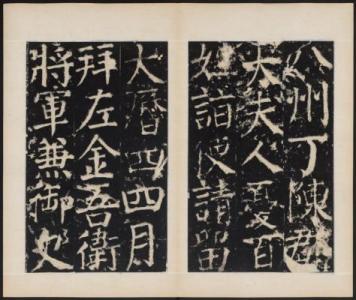 八州丁陳郡
太夫人憂百
姓詣使請留
大曆四四月
拜左金吾衛
將軍兼御史